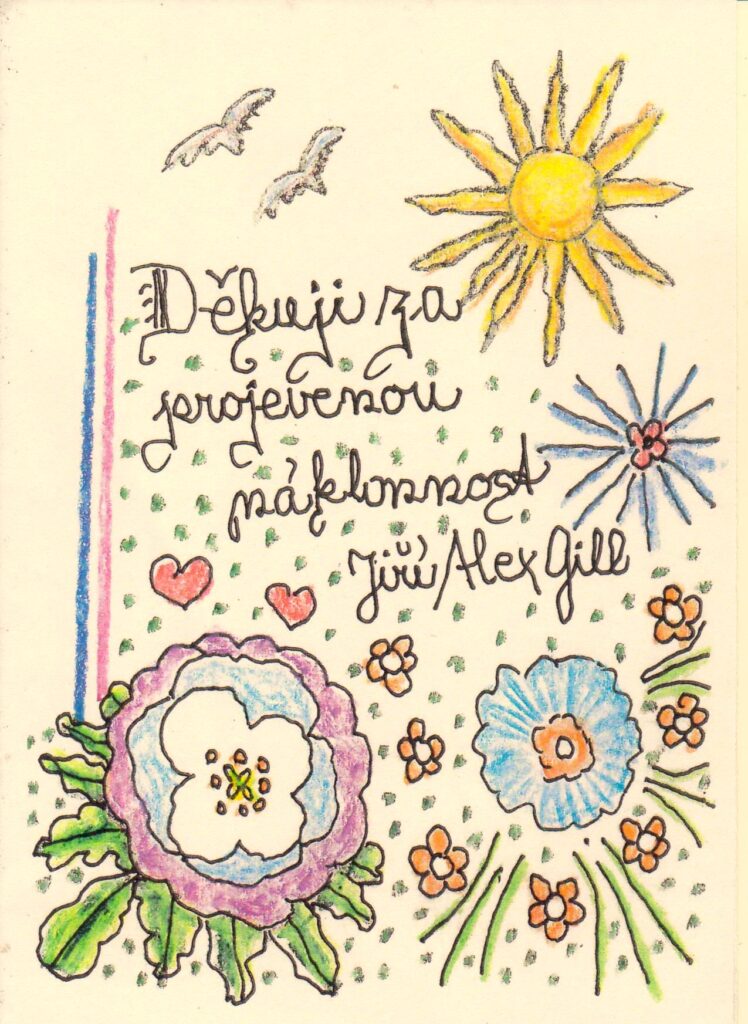 Děkuji za
projevenou
náklonnost
Jiří Alex Gill